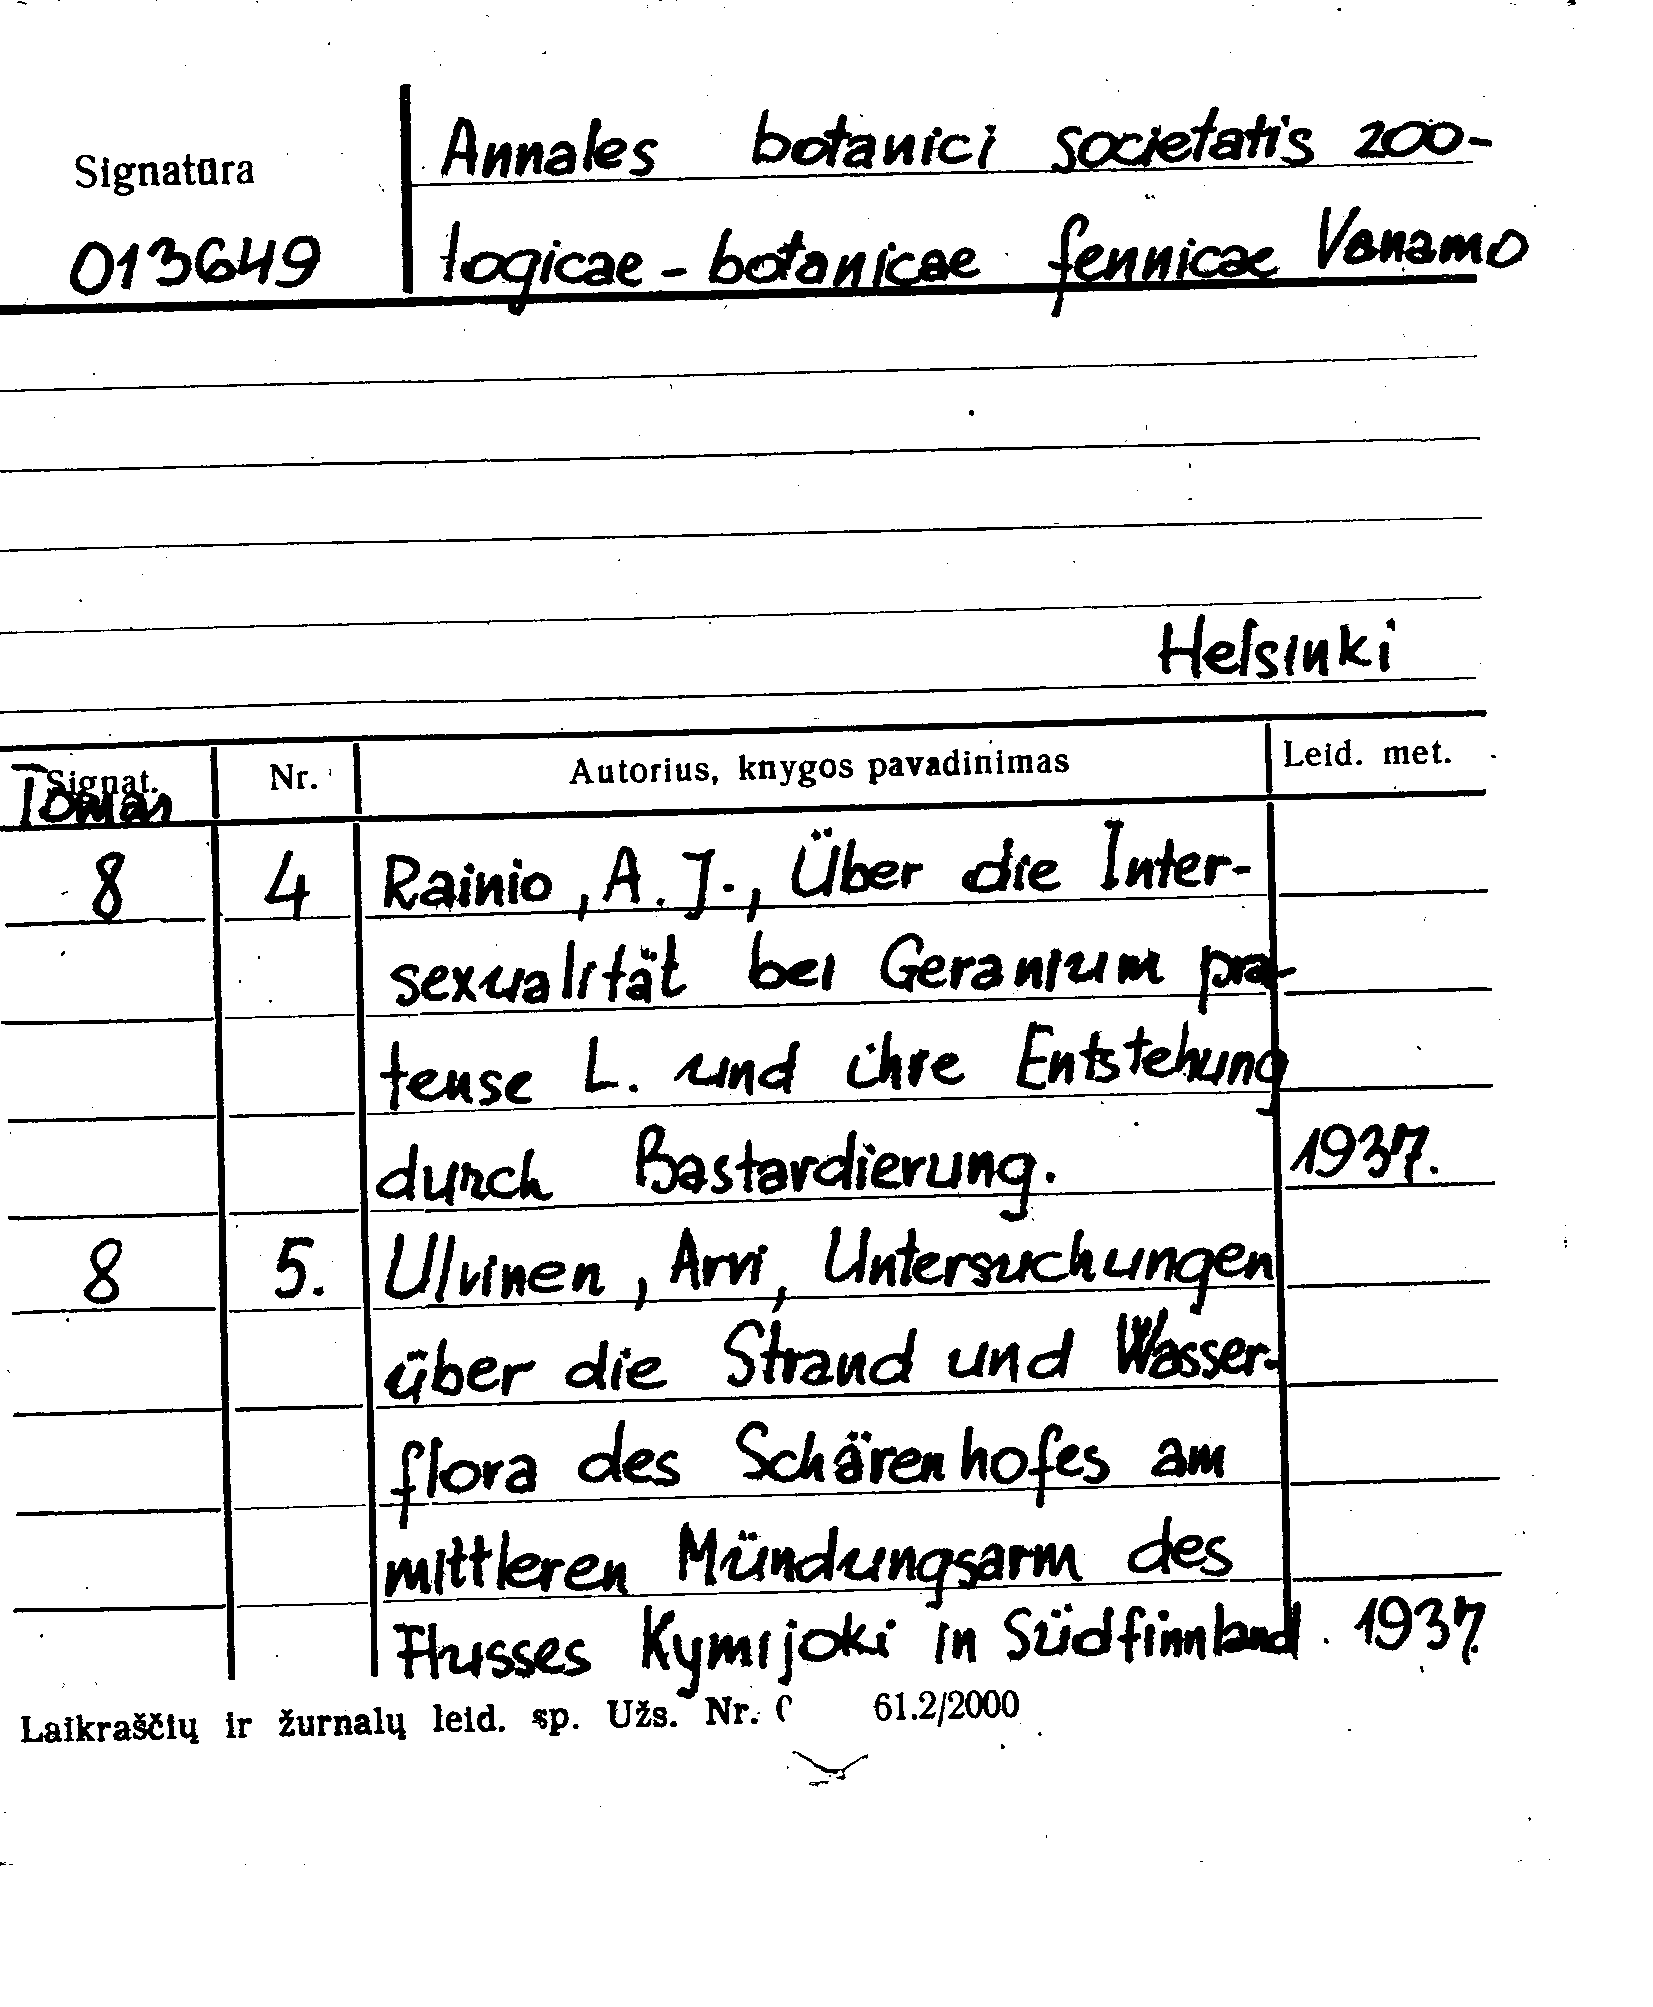 Signatūra
013649
Annales botanici societatis zoo-
logicae-botanicae fennicae Vanamo
Helsinki
Signat. Nr. Autorius, knygos pavadinimas Leid. met.
Tomas
8 4 Rainio, A. J., Über die Inter-
sexualität bei Geranium pra-
tense L. und ihre Entstehung
durch Bastardierung. 1937.
8 5. Ulvinen, Arvi, Untersuchungen
über die Strand und Wasser-
flora des Schärenhofes am
mittleren Mündungsarm des
Flusses Kymijoki in Südfinnland. 1937.
Laikraščių ir žurnalų leid. sp. Užs. Nr. 61.2/2000